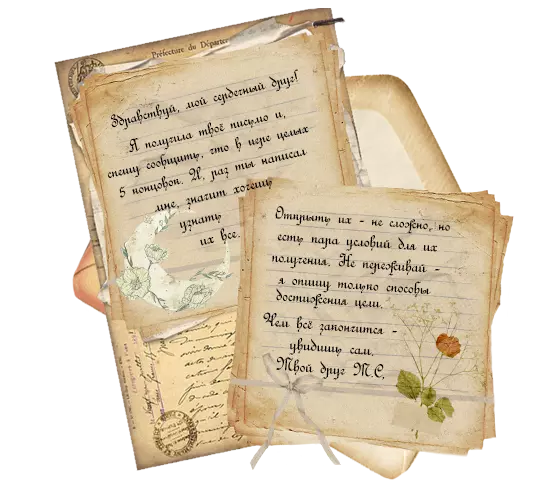 Préfecture du Départe
Здравствуй, мой сердечный друг!
Я получила твоё письмо и,
спешу сообщить, что в игре целых
5 концовок. И, раз ты написал
мне, значит хочешь
узнать
их все.
Открыть их - не сложно, но
есть пара условий для их
получения. Не переживай -
я опишу только способы
достижения цели.
Чем всё закончится -
увидишь сам.
Твой друг Т.С.